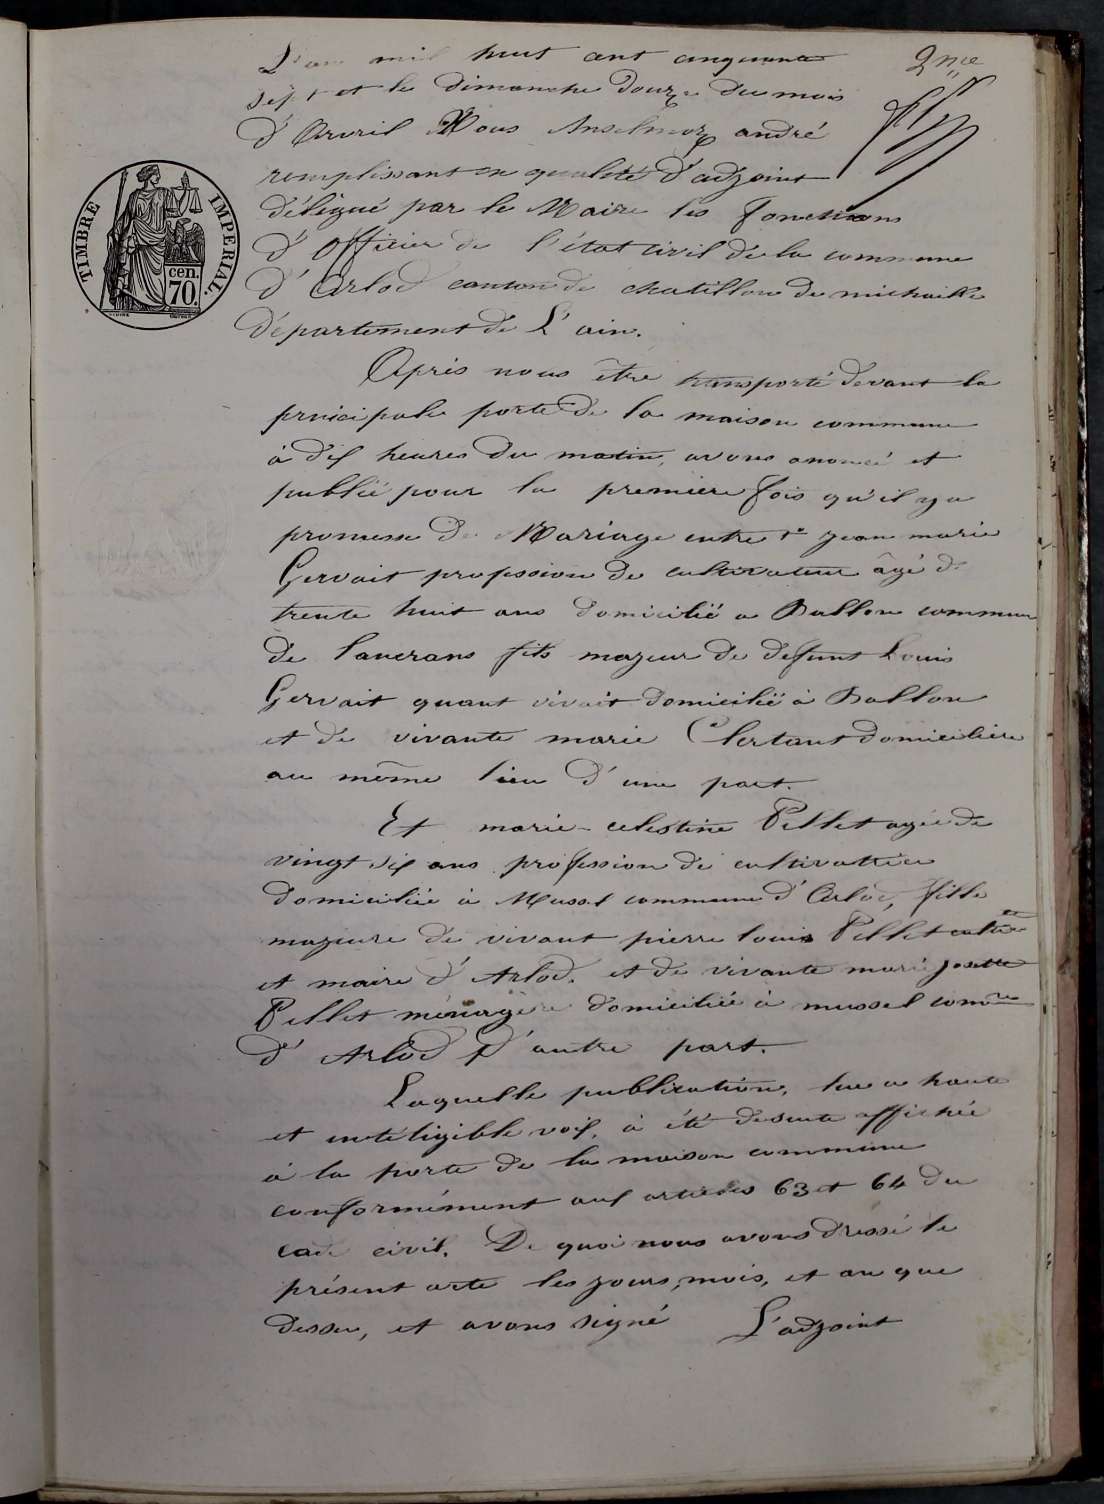 L'an mil huit cent cinquante
sept et le dimanche douze du mois
d'Avril Nous Anselmoz andré
remplissant en qualité d'adjoint
délégué par le Maire les fonctions
d'officier de l'état civil de la commune
d'Arlod canton de chatillon de michaille
département de L'ain.
Après nous être transporté devant la
principale porte de la maison commune
à dix heures du matin, avons anoncé et
publié pour la première fois qu'il y a
promesse de Mariage entre jean marie
Gervait profession de cultivateur âgé de
trente huit ans domicilié a Ballon commune
de lancrans fils majeur de defunt Louis
Gervait quant vivait domicilié à Ballon
et de vivante marie domiciliée
au même lieu d'une part.
Et marie-celestine Pellet agée de
vingt six ans profession de cultivatrice
domiciliée à Mussel commune d'Arlod, fille
majeure de vivant pierre louis Pellet cultr
et maire d'Arlod. et de vivante marie josette
Pellet ménagère domiciliée à mussel comne
d'Arlod d'autre part.
Laquelle publication, lue a haute
et inteligible voix, à été desuite affichée
à la porte de la maison commune
conformément aux articles 63 et 64 du
code civil. De quoi nous avons dressé le
présent acte les jours, mois, et an que
dessu, et avons signé L'adjoint
TIMBRE IMPERIAL.
cen.
70.